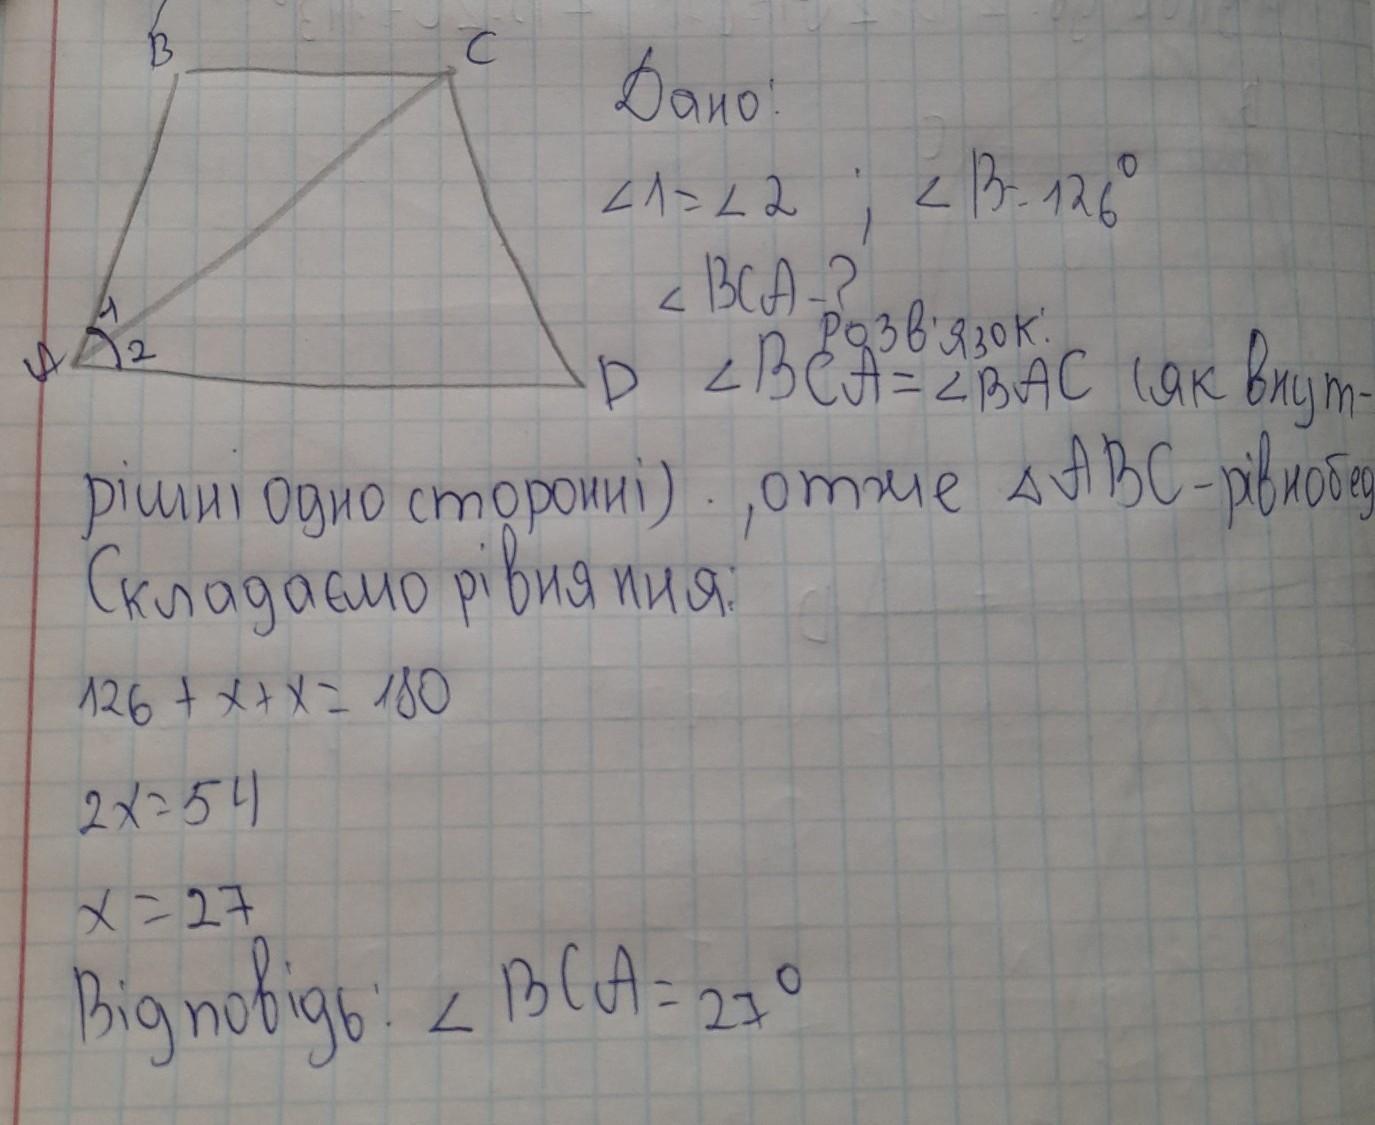 B C
Дано:
∠1=∠2 ; ∠B=126°
∠BCA-?
Розв'язок:
1
2
A D ∠BCA=∠BAC (як внут-
рішні односторонні) ., отже △ABC-рівнобед
Складаємо рівняння:
126 + x+x= 180
2x=54
x=27
Відповідь: ∠BCA=27°